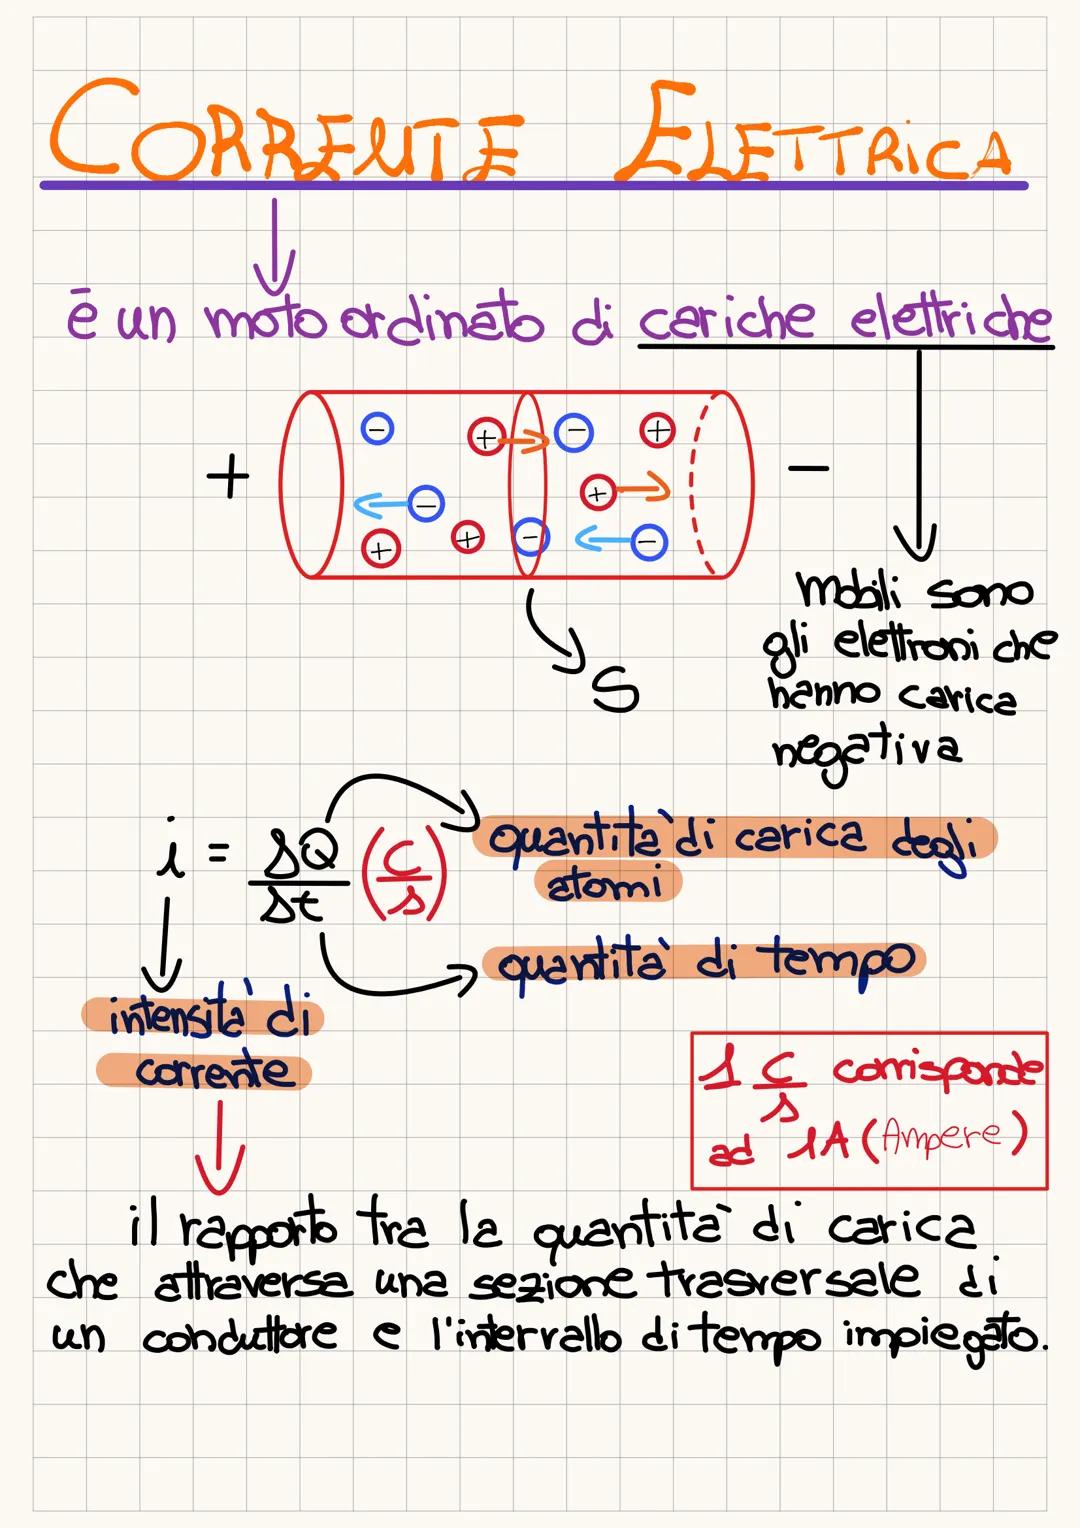 CORRENTE ELETTRICA
è un moto ordinato di cariche elettriche
+ − + − + −
− +
+ + − −
S
mobili sono
gli elettroni che
hanno carica
negativa
i = ΔQ/Δt (C/s)
quantità di carica degli
atomi
quantità di tempo
intensità di
corrente
1 C/s corrisponde
ad 1A (Ampere)
il rapporto tra la quantità di carica
che attraversa una sezione trasversale di
un conduttore e l'intervallo di tempo impiegato.